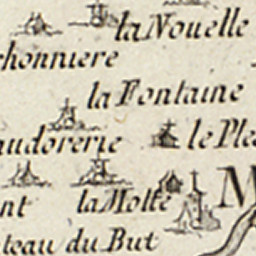 la Nouelle
chonniere
la Fontaine
audorerie le Ple
nt la Motte M
teau du But